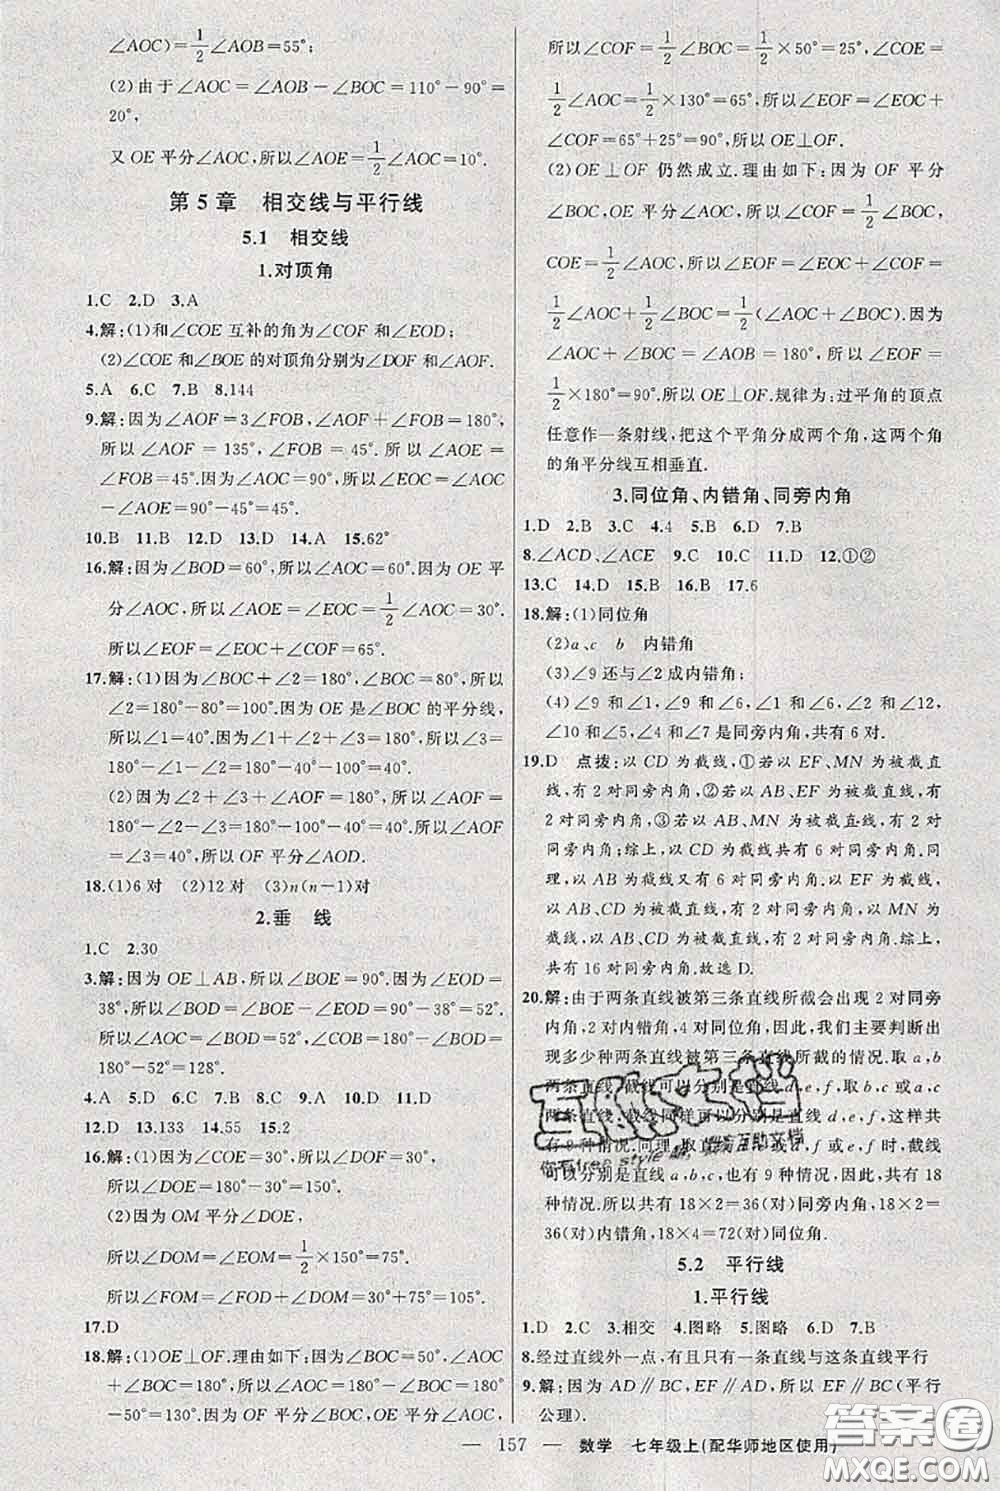 ∠AOC)=1/2∠AOB=55°;
(2)由于∠AOC=∠AOB-∠BOC=110°-90°=
20°,
又OE平分∠AOC,所以∠AOE=1/2∠AOC=10°.
第5章 相交线与平行线
5.1 相交线
1.对顶角
1.C 2.D 3.A
4.解:(1)和∠COE互补的角为∠COF和∠EOD;
(2)∠COE和∠BOE的对顶角分别为∠DOF和∠AOF.
5.A 6.C 7.B 8.144
9.解:因为∠AOF=3∠FOB,∠AOF+∠FOB=180°,
所以∠AOF=135°,∠FOB=45°,所以∠AOE=
∠FOB=45°.因为∠AOC=90°,所以∠EOC=∠AOC
-∠AOE=90°-45°=45°.
10.B 11.B 12.D 13.D 14.A 15.62°
16.解:因为∠BOD=60°,所以∠AOC=60°.因为OE平
分∠AOC,所以∠AOE=∠EOC=1/2∠AOC=30°.
所以∠EOF=∠EOC+∠COF=90°.
17.解:(1)因为∠BOC+∠2=180°,∠BOC=80°,所以
∠2=180°-80°=100°.因为OE是∠BOC的平分线,
所以∠1=40°.因为∠1+∠2+∠3=180°,所以∠3=
180°-∠1-∠2=180°-40°-100°=40°.
(2)因为∠2+∠3+∠AOF=180°,所以∠AOF=
180°-∠2-∠3=180°-100°-40°=40°.所以∠AOF
=∠3=40°,所以OF平分∠AOD.
18.(1)6对 (2)12对 (3)n(n-1)对
2.垂 线
1.C 2.30
3.解:因为OE⊥AB,所以∠BOE=90°.因为∠EOD=
38°,所以∠BOD=∠BOE-∠EOD=90°-38°=52°.
所以∠AOC=∠BOD=52°,∠COB=180°-∠BOD=
180°-52°=128°.
4.A 5.D 6.A 7.D 8.C 9.D 10.D 11.D
12.D 13.133 14.55 15.2
16.解:(1)因为∠COE=30°,所以∠DOF=30°,
所以∠DOE=180°-30°=150°.
(2)因为OM平分∠DOE,
所以∠DOM=∠EOM=1/2×150°=75°.
所以∠FOM=∠FOD+∠DOM=30°+75°=105°.
17.D
18.解:(1)OE⊥OF.理由如下:因为∠BOC=50°,∠AOC
+∠BOC=180°,所以∠AOC=180°-∠BOC=180°
-50°=130°.因为OF平分∠BOC,OE平分∠AOC,
所以∠COF=1/2∠BOC=1/2×50°=25°,∠COE=
1/2∠AOC=1/2×130°=65°,所以∠EOF=∠EOC+
∠COF=65°+25°=90°,所以OE⊥OF.
(2)OE⊥OF仍然成立.理由如下:因为OF平分
∠BOC,OE平分∠AOC,所以∠COF=1/2∠BOC,
∠COE=1/2∠AOC,所以∠EOF=∠EOC+∠COF=
1/2∠AOC+1/2∠BOC=1/2(∠AOC+∠BOC).因为
∠AOC+∠BOC=∠AOB=180°,所以∠EOF=
1/2×180°=90°,所以OE⊥OF.规律为:过平角的顶点
任意作一条射线,把这个平角分成两个角,这两个角
的角平分线互相垂直.
3.同位角、内错角、同旁内角
1.D 2.B 3.C 4.4 5.B 6.D 7.B
8.∠ACD、∠ACE 9.C 10.C 11.D 12.①②
13.C 14.D 15.B 16.B 17.6
18.解:(1)同位角
(2)a、c b 内错角
(3)∠9还与∠2成内错角;
(4)∠9和∠1,∠9和∠6,∠1和∠6,∠2和∠12,
∠2和∠10,∠4和∠7是同旁内角,共有6对.
19.D 点拨:以CD为截线,①若以EF、MN为被截直
线,有2对同旁内角,②若以AB、EF为被截直线,有
2对同旁内角,③若以AB、MN为被截直线,有2对
同旁内角;综上,以CD为截线共有6对同旁内角.同
理,以AB为截线又有6对同旁内角.以EF为截线,
以AB、CD为被截直线,有2对同旁内角,以MN为
截线,以AB、CD为被截直线,有2对同旁内角.综上,
共有16对同旁内角.故选D.
20.解:由于两条直线被第三条直线所截会出现2对同旁
内角,2对内错角,4对同位角,因此,我们主要判断出
现多少种两条直线被第三条直线所截的情况.取a、b
两条直线,截线可以分别是直线d,e,f,取b、c或a、c
两条直线,截线同样可以分别是直线d,e,f,这样共
有9种情况.同理,取d、e或d、f或e、f,截线
可以分别是直线a,b,c,也有9种情况,因此,共有18
种情况.所以共有18×2=36(对)同旁内角,18×2=
36(对)内错角,18×4=72(对)同位角.
5.2 平行线
1.平行线
1.D 2.C 3.相交 4.图略 5.图略 6.D 7.B
8.经过直线外一点,有且只有一条直线与这条直线平行
9.解:因为AD∥BC,EF∥AD,所以EF∥BC(平行
公理).
— 157 — 数学 七年级上(配华师地区使用)
答案圈
MXQE.COM